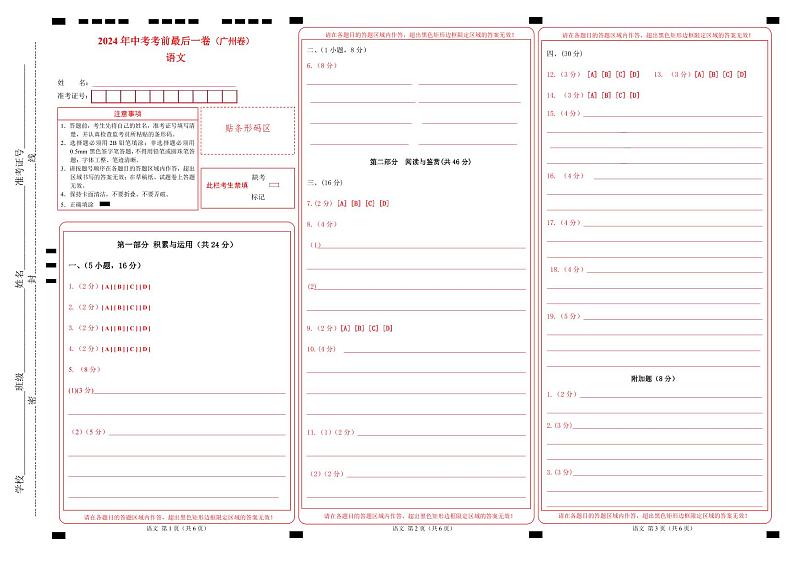 2024年中考考前最后一卷（广州卷）
语文
姓　名：
准考证号：
注意事项
1．答题前，考生先将自己的姓名，准考证号填写清
楚，并认真检查监考员所粘贴的条形码。
2．选择题必须用2B铅笔填涂；非选择题必须用
0.5mm黑色签字笔答题，不得用铅笔或圆珠笔答
题；字体工整、笔迹清晰。
3．请按题号顺序在各题目的答题区域内作答，超出
区域书写的答案无效；在草稿纸、试题卷上答题
无效。
4．保持卡面清洁，不要折叠、不要弄破。
5．正确填涂
贴条形码区
此栏考生禁填
缺考
标记
准考证号
姓名
班级
学校
线
封
密
第一部分 积累与运用（共24分）
一、（5小题，16分）
1.（2分）[A][B][C][D]
2.（2分）[A][B][C][D]
3.（2分）[A][B][C][D]
4.（2分）[A][B][C][D]
5.（8分）
(1)(3分)
（2）（5分）
请在各题目的答题区域内作答，超出黑色矩形边框限定区域的答案无效！
语文 第1页（共6页）
请在各题目的答题区域内作答，超出黑色矩形边框限定区域的答案无效！
二、（1小题，8分）
6.（8分）
第二部分 阅读与鉴赏(共46分)
三、(16分)
7.(2分) [A] [B] [C] [D]
8.（4分）
（1)
(2)
9.（2分）[A] [B] [C] [D]
10.(4分)
11.（1）(2分)
（2）(2分）
请在各题目的答题区域内作答，超出黑色矩形边框限定区域的答案无效！
语文 第2页（共6页）
请在各题目的答题区域内作答，超出黑色矩形边框限定区域的答案无效！
四．(30分)
12.（3分） [A] [B] [C] [D] 13.（3分）[A] [B] [C] [D]
14.（3分）[A] [B] [C] [D]
15.（4分）
16.（4分）
17.（4分）
18.（4分）
19.（5分）
附加题（8分）
1.（2分）
2.(3分)
3.(3分)
请在各题目的答题区域内作答，超出黑色矩形边框限定区域的答案无效！
语文 第3页（共6页）